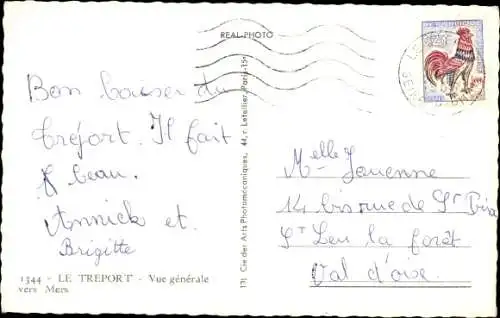 REAL-PHOTO
Bon baiser du
Tréport. Il fait
beau.
Annick et
Brigitte
1344 - LE TREPORT - Vue générale
vers Mers
131 Cie des Arts Photomécaniques, 44, r. Letellier, Paris-15e
Melle Jouenne
14 bis rue de St Prix
St Leu la forêt
Val d'oise.